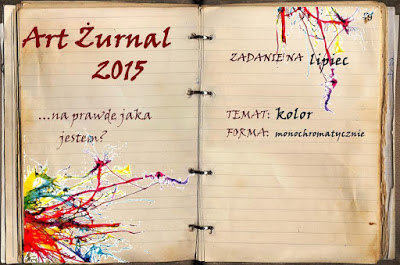 Art Żurnal
2015
...na prawdę jaka
jestem?
ZADANIE NA lipiec
TEMAT: kolor
FORMA: monochromatycznie